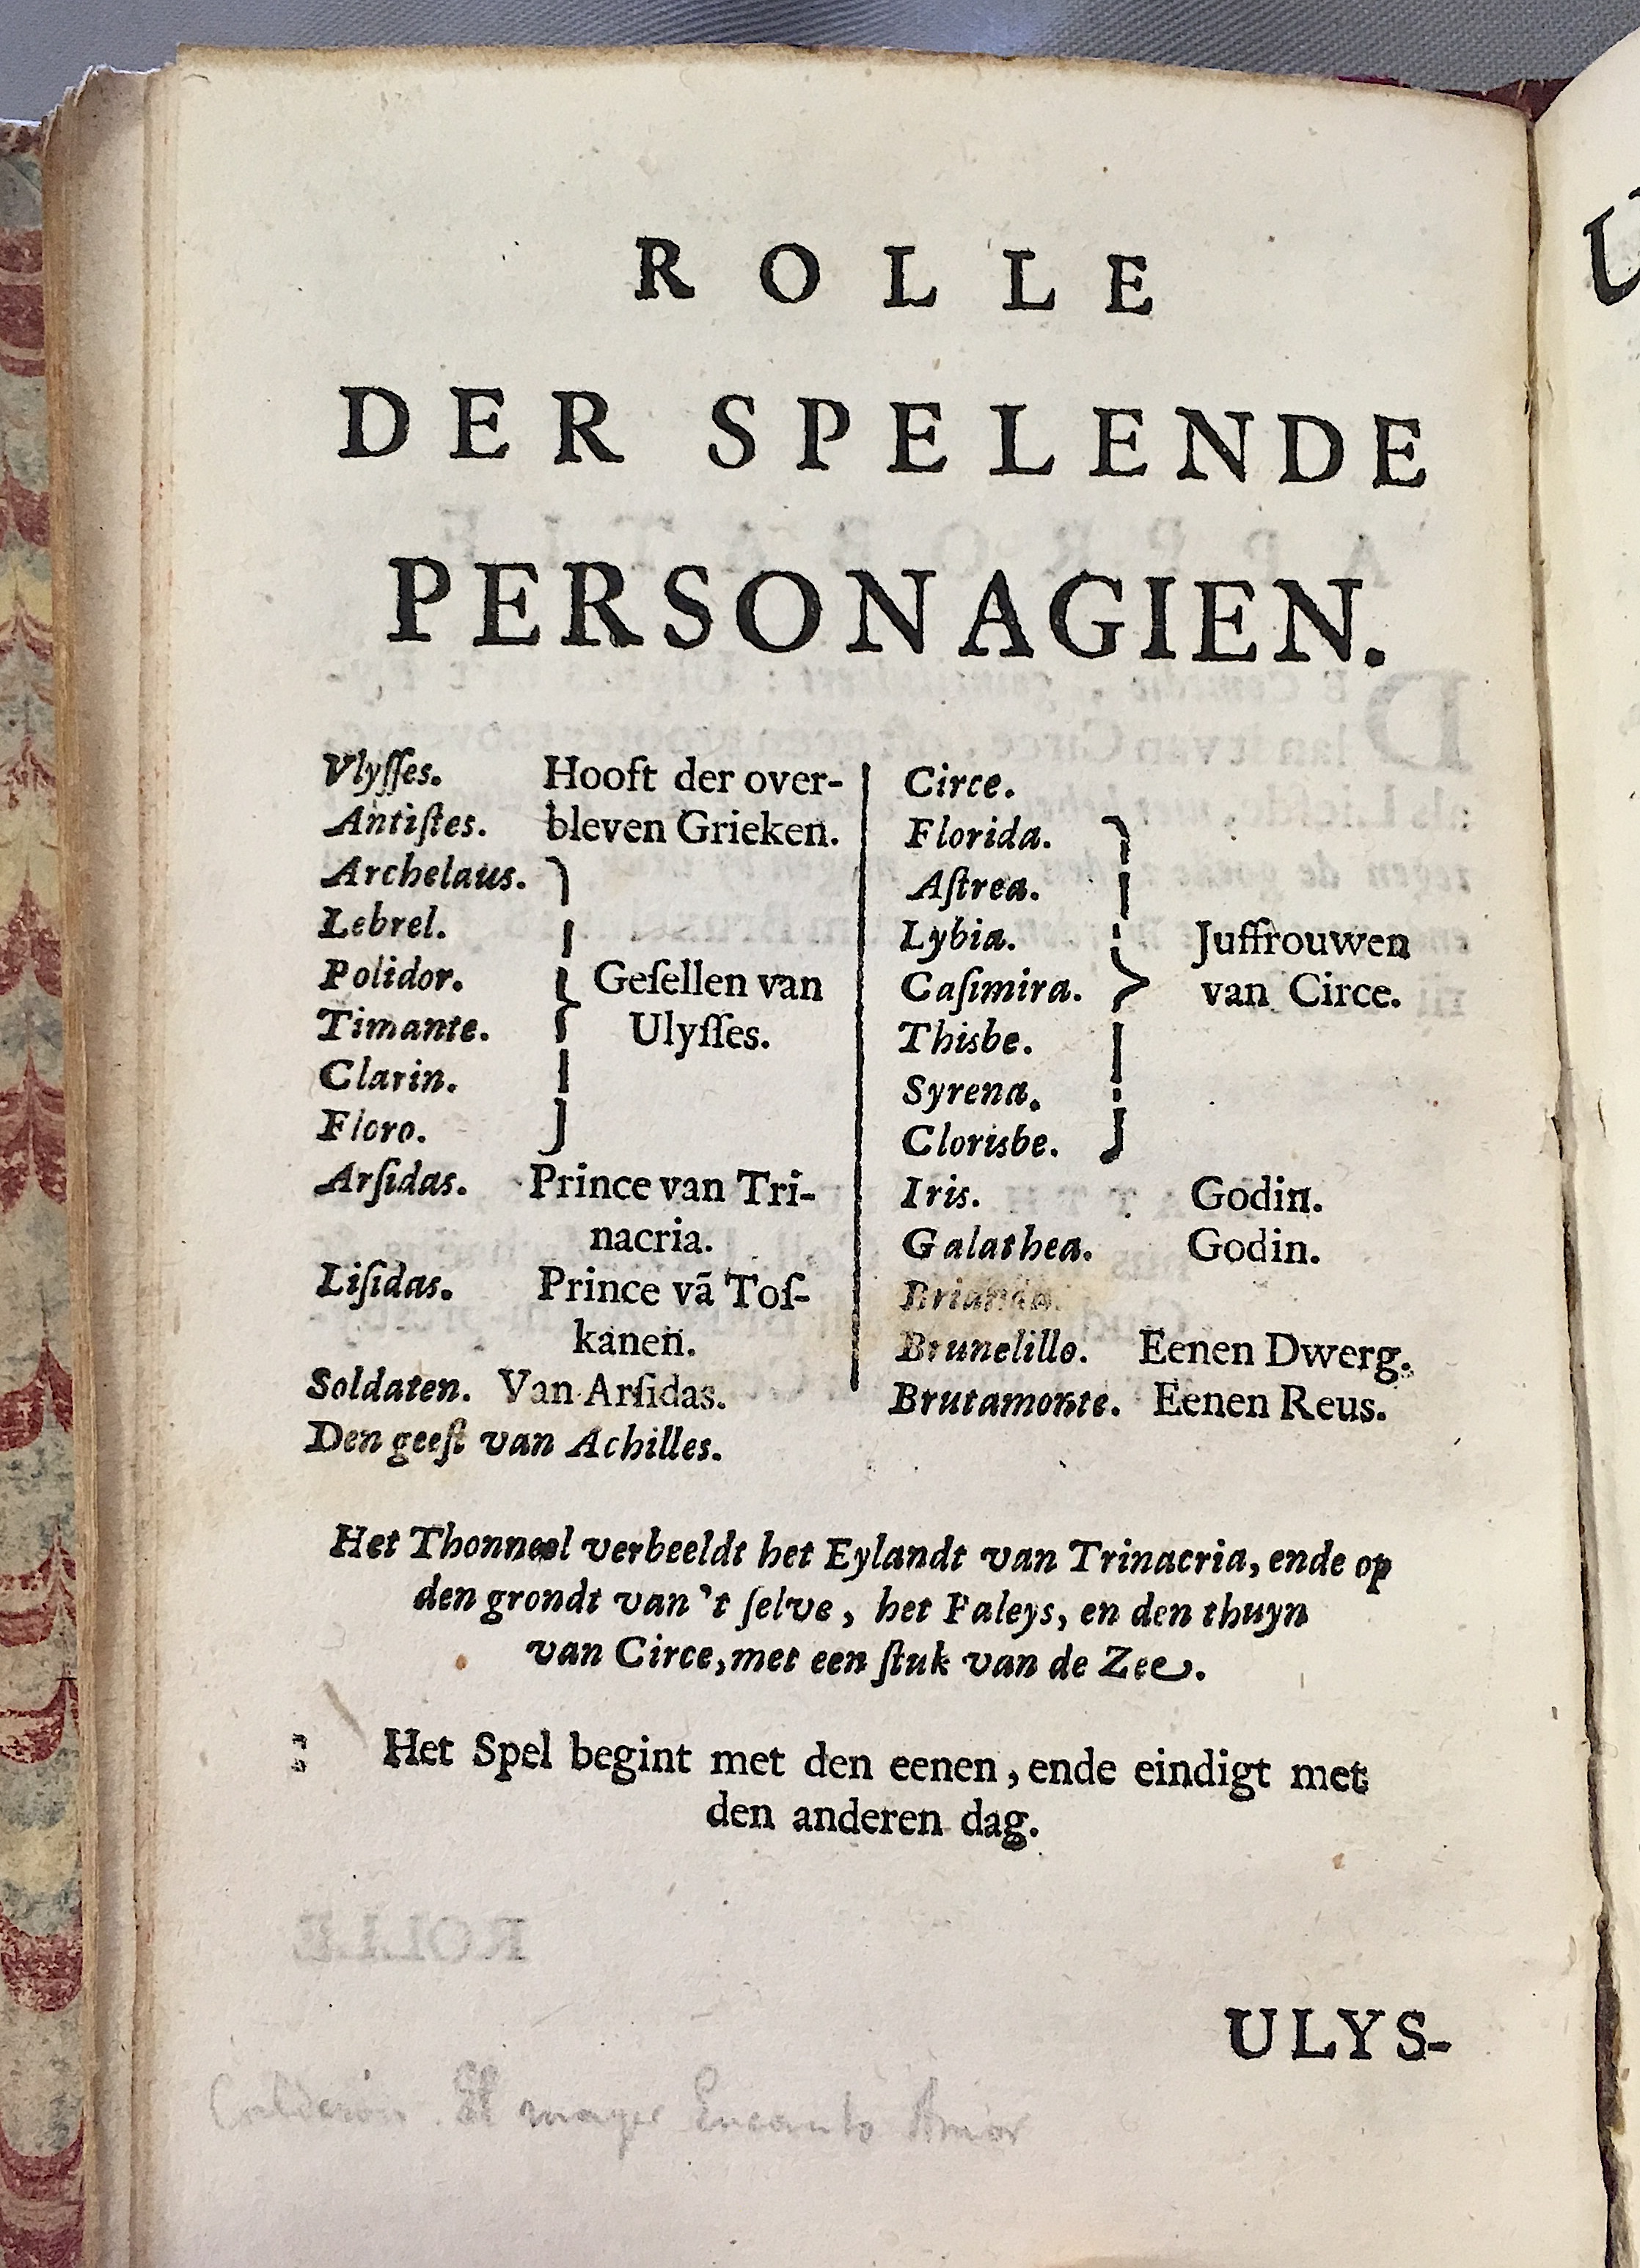 ROLLE
DER SPELENDE
PERSONAGIEN.
Vlyſſes. Hooft der over-
Antiſtes. bleven Grieken.
Archelaus.
Lebrel.
Polidor. Geſellen van
Timante. Ulyſſes.
Clarin.
Floro.
Arſidas. Prince van Tri-
nacria.
Liſidas. Prince vã Toſ-
kanen.
Soldaten. Van Arſidas.
Den geeſt van Achilles.
Circe.
Florida.
Aſtrea.
Lybia. Juffrouwen
Caſimira. van Circe.
Thisbe.
Syrena.
Clorisbe.
Iris. Godin.
Galathea. Godin.
Brunelillo. Eenen Dwerg.
Brutamonte. Eenen Reus.
Het Thonneel verbeeldt het Eylandt van Trinacria, ende op
den grondt van't ſelve, het Paleys, en den thuyn
van Circe, met een ſtuk van de Zee.
Het Spel begint met den eenen, ende eindigt met
den anderen dag.
ULYS-
Calderon. El mayor Encanto Amor